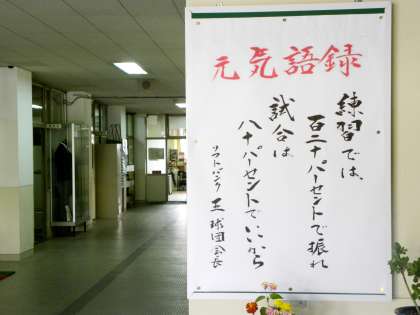 元気語録
練習では、
百二十パーセントで振れ
試合は
八十パーセントでいいから
ソフトバンク 王 球団会長